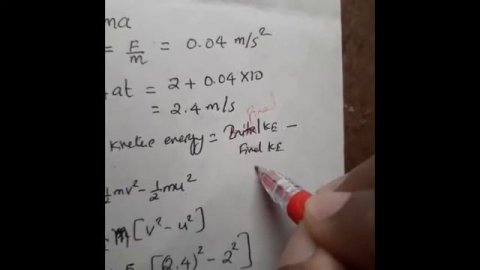 ma
= F/m = 0.04 m/s²
+at = 2 + 0.04×10
= 2.4 m/s
Final
Kinetic energy = Initial KE −
Final KE
½mv² − ½mu²
m[v² − u²]
[(2.4)² − 2²]